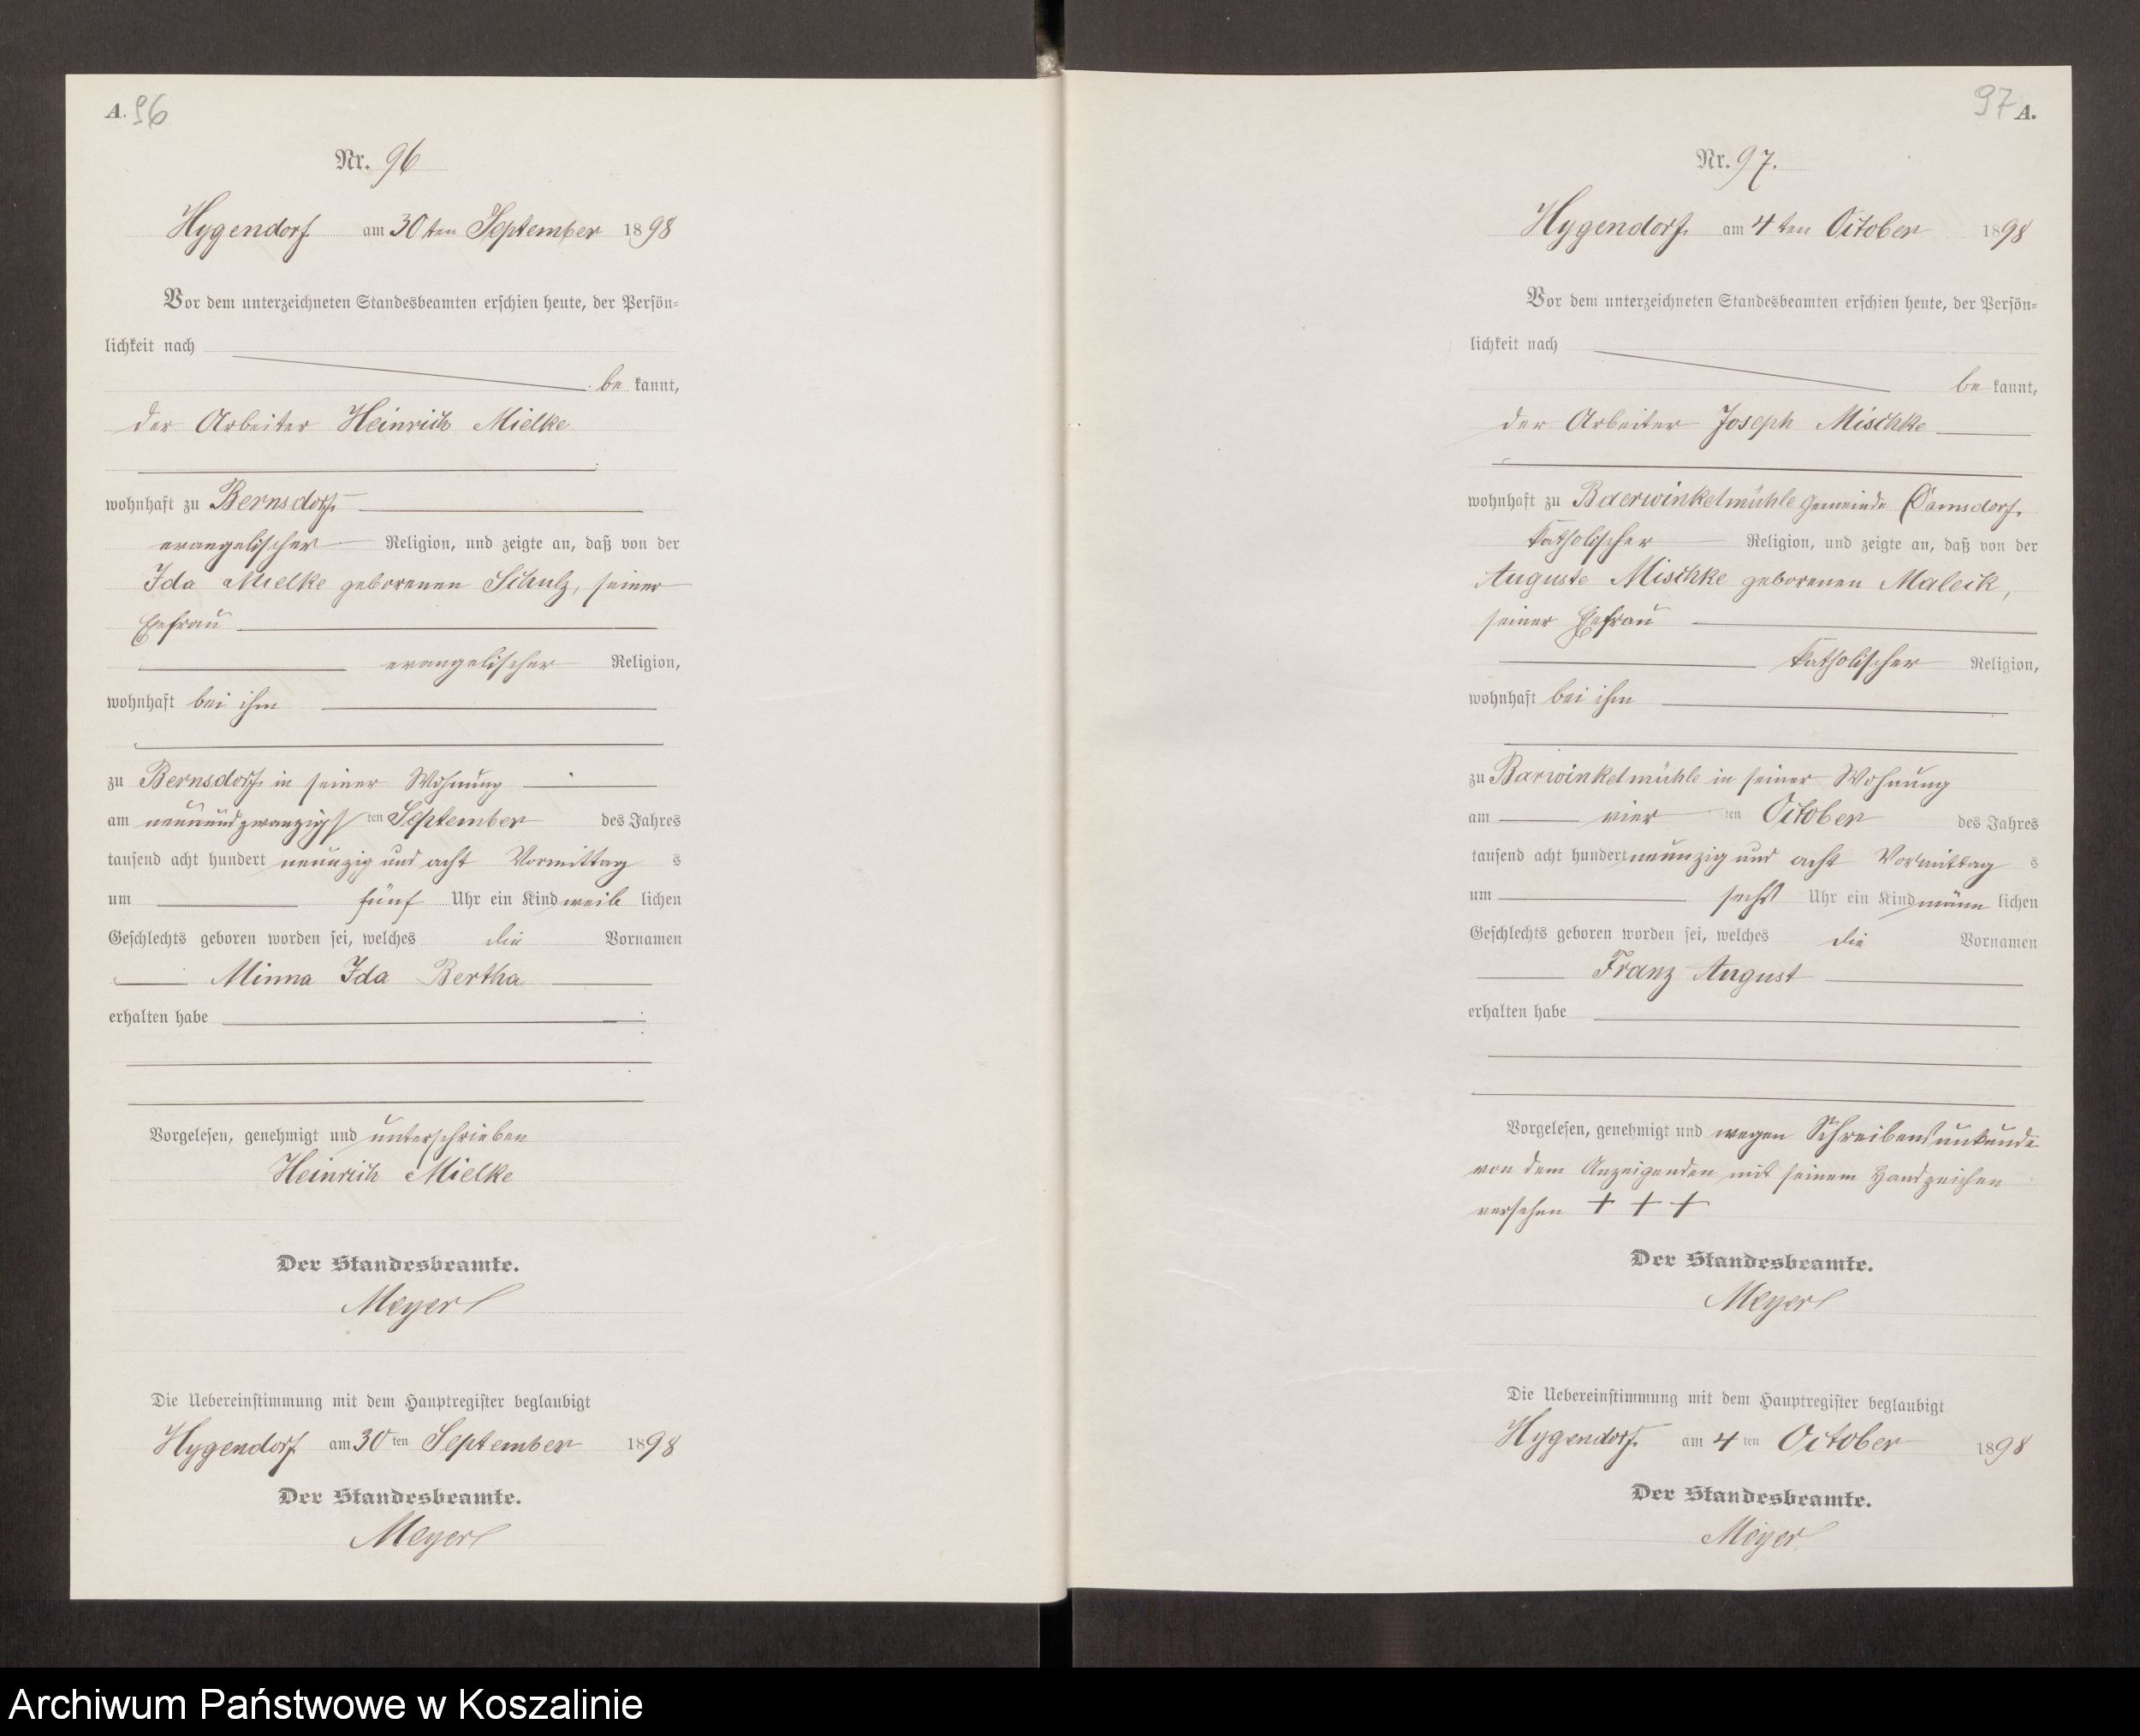 A. 96
Nr. 96
Hygendorf am 30ten September 1898
Vor dem unterzeichneten Standesbeamten erschien heute, der Persön=
lichkeit nach
be kannt,
der Arbeiter Heinrich Mielke
wohnhaft zu Bernsdorf
evangelischer Religion, und zeigte an, daß von der
Ida Mielke geborenen Schulz, seiner
Ehefrau
evangelischer Religion,
wohnhaft bei ihm
zu Bernsdorf in seiner Wohnung
am neunundzwanzigsten September des Jahres
tausend acht hundert neunzig und acht Vormittag s
um fünf Uhr ein Kind weib lichen
Geschlechts geboren worden sei, welches die Vornamen
Minna Ida Bertha
erhalten habe
Vorgelesen, genehmigt und unterschrieben
Heinrich Mielke
Der Standesbeamte.
Meyer
Die Uebereinstimmung mit dem Hauptregister beglaubigt
Hygendorf am 30ten September 1898
Der Standesbeamte.
Meyer
97 A.
Nr. 97.
Hygendorf am 4ten October 1898
Vor dem unterzeichneten Standesbeamten erschien heute, der Persön=
lichkeit nach
be kannt,
der Arbeiter Joseph Mischke
wohnhaft zu Baerwinkelmühle Gemeinde Damsdorf,
katholischer Religion, und zeigte an, daß von der
Auguste Mischke geborenen Maleck,
seiner Ehefrau
katholischer Religion,
wohnhaft bei ihm
zu Barwinkelmühle in seiner Wohnung
am vier ten October des Jahres
tausend acht hundert neunzig und acht Vormittag s
um sechs Uhr ein Kind männ lichen
Geschlechts geboren worden sei, welches die Vornamen
Franz August
erhalten habe
Vorgelesen, genehmigt und wegen Schreibensunkunde
von dem Anzeigenden mit seinem Handzeichen
versehen + + +
Der Standesbeamte.
Meyer
Die Uebereinstimmung mit dem Hauptregister beglaubigt
Hygendorf am 4 ten October 1898
Der Standesbeamte.
Meyer
Archiwum Państwowe w Koszalinie